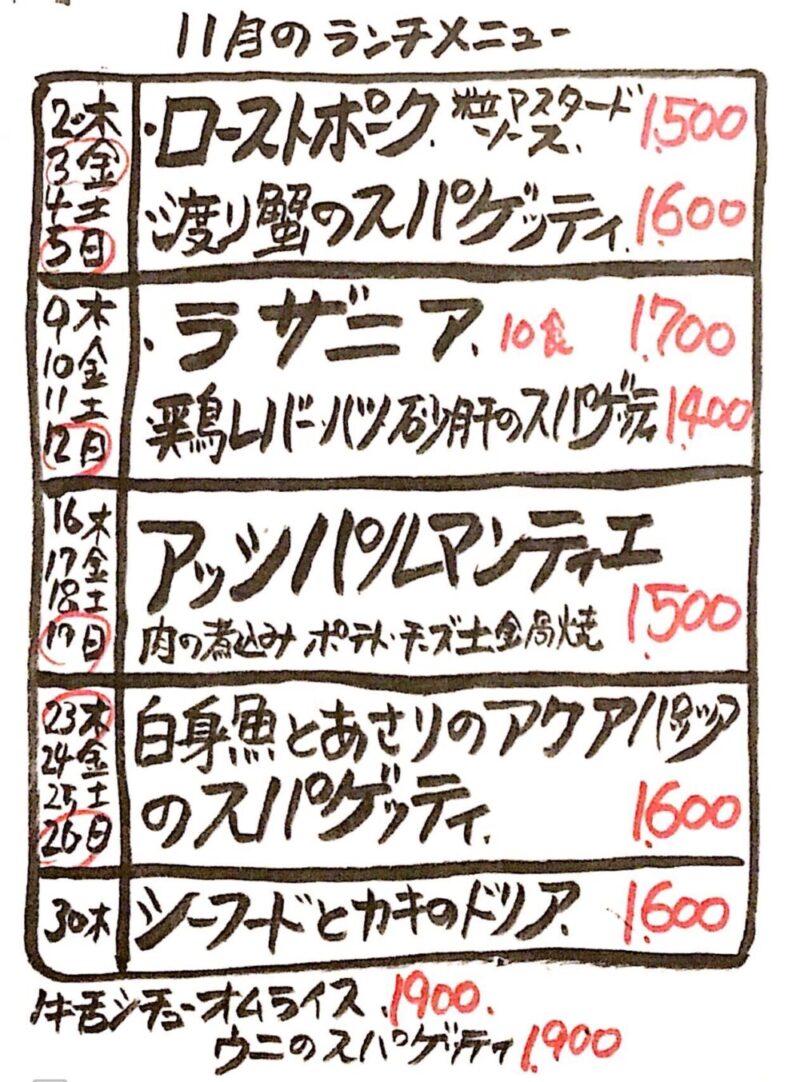 11月のランチメニュー
2木
3金
4土
5日
・ローストポーク 粒マスタード
ソース
1.500
・渡り蟹のスパゲッティ 1.600
9木
10金
11土
12日
・ラザニア 10食 1.700
鶏レバーハツ砂肝のスパゲッティ 1.400
16木
17金
18土
19日
アッシパルマンティエ
肉の煮込み ポテト・チーズ土金局焼
1.500
23木
24金
25土
26日
白身魚とあさりのアクアパッツァ
のスパゲッティ 1.600
30木
シーフードとカキのドリア 1.600
牛舌シチューオムライス 1.900
ウニのスパゲッティ 1.900